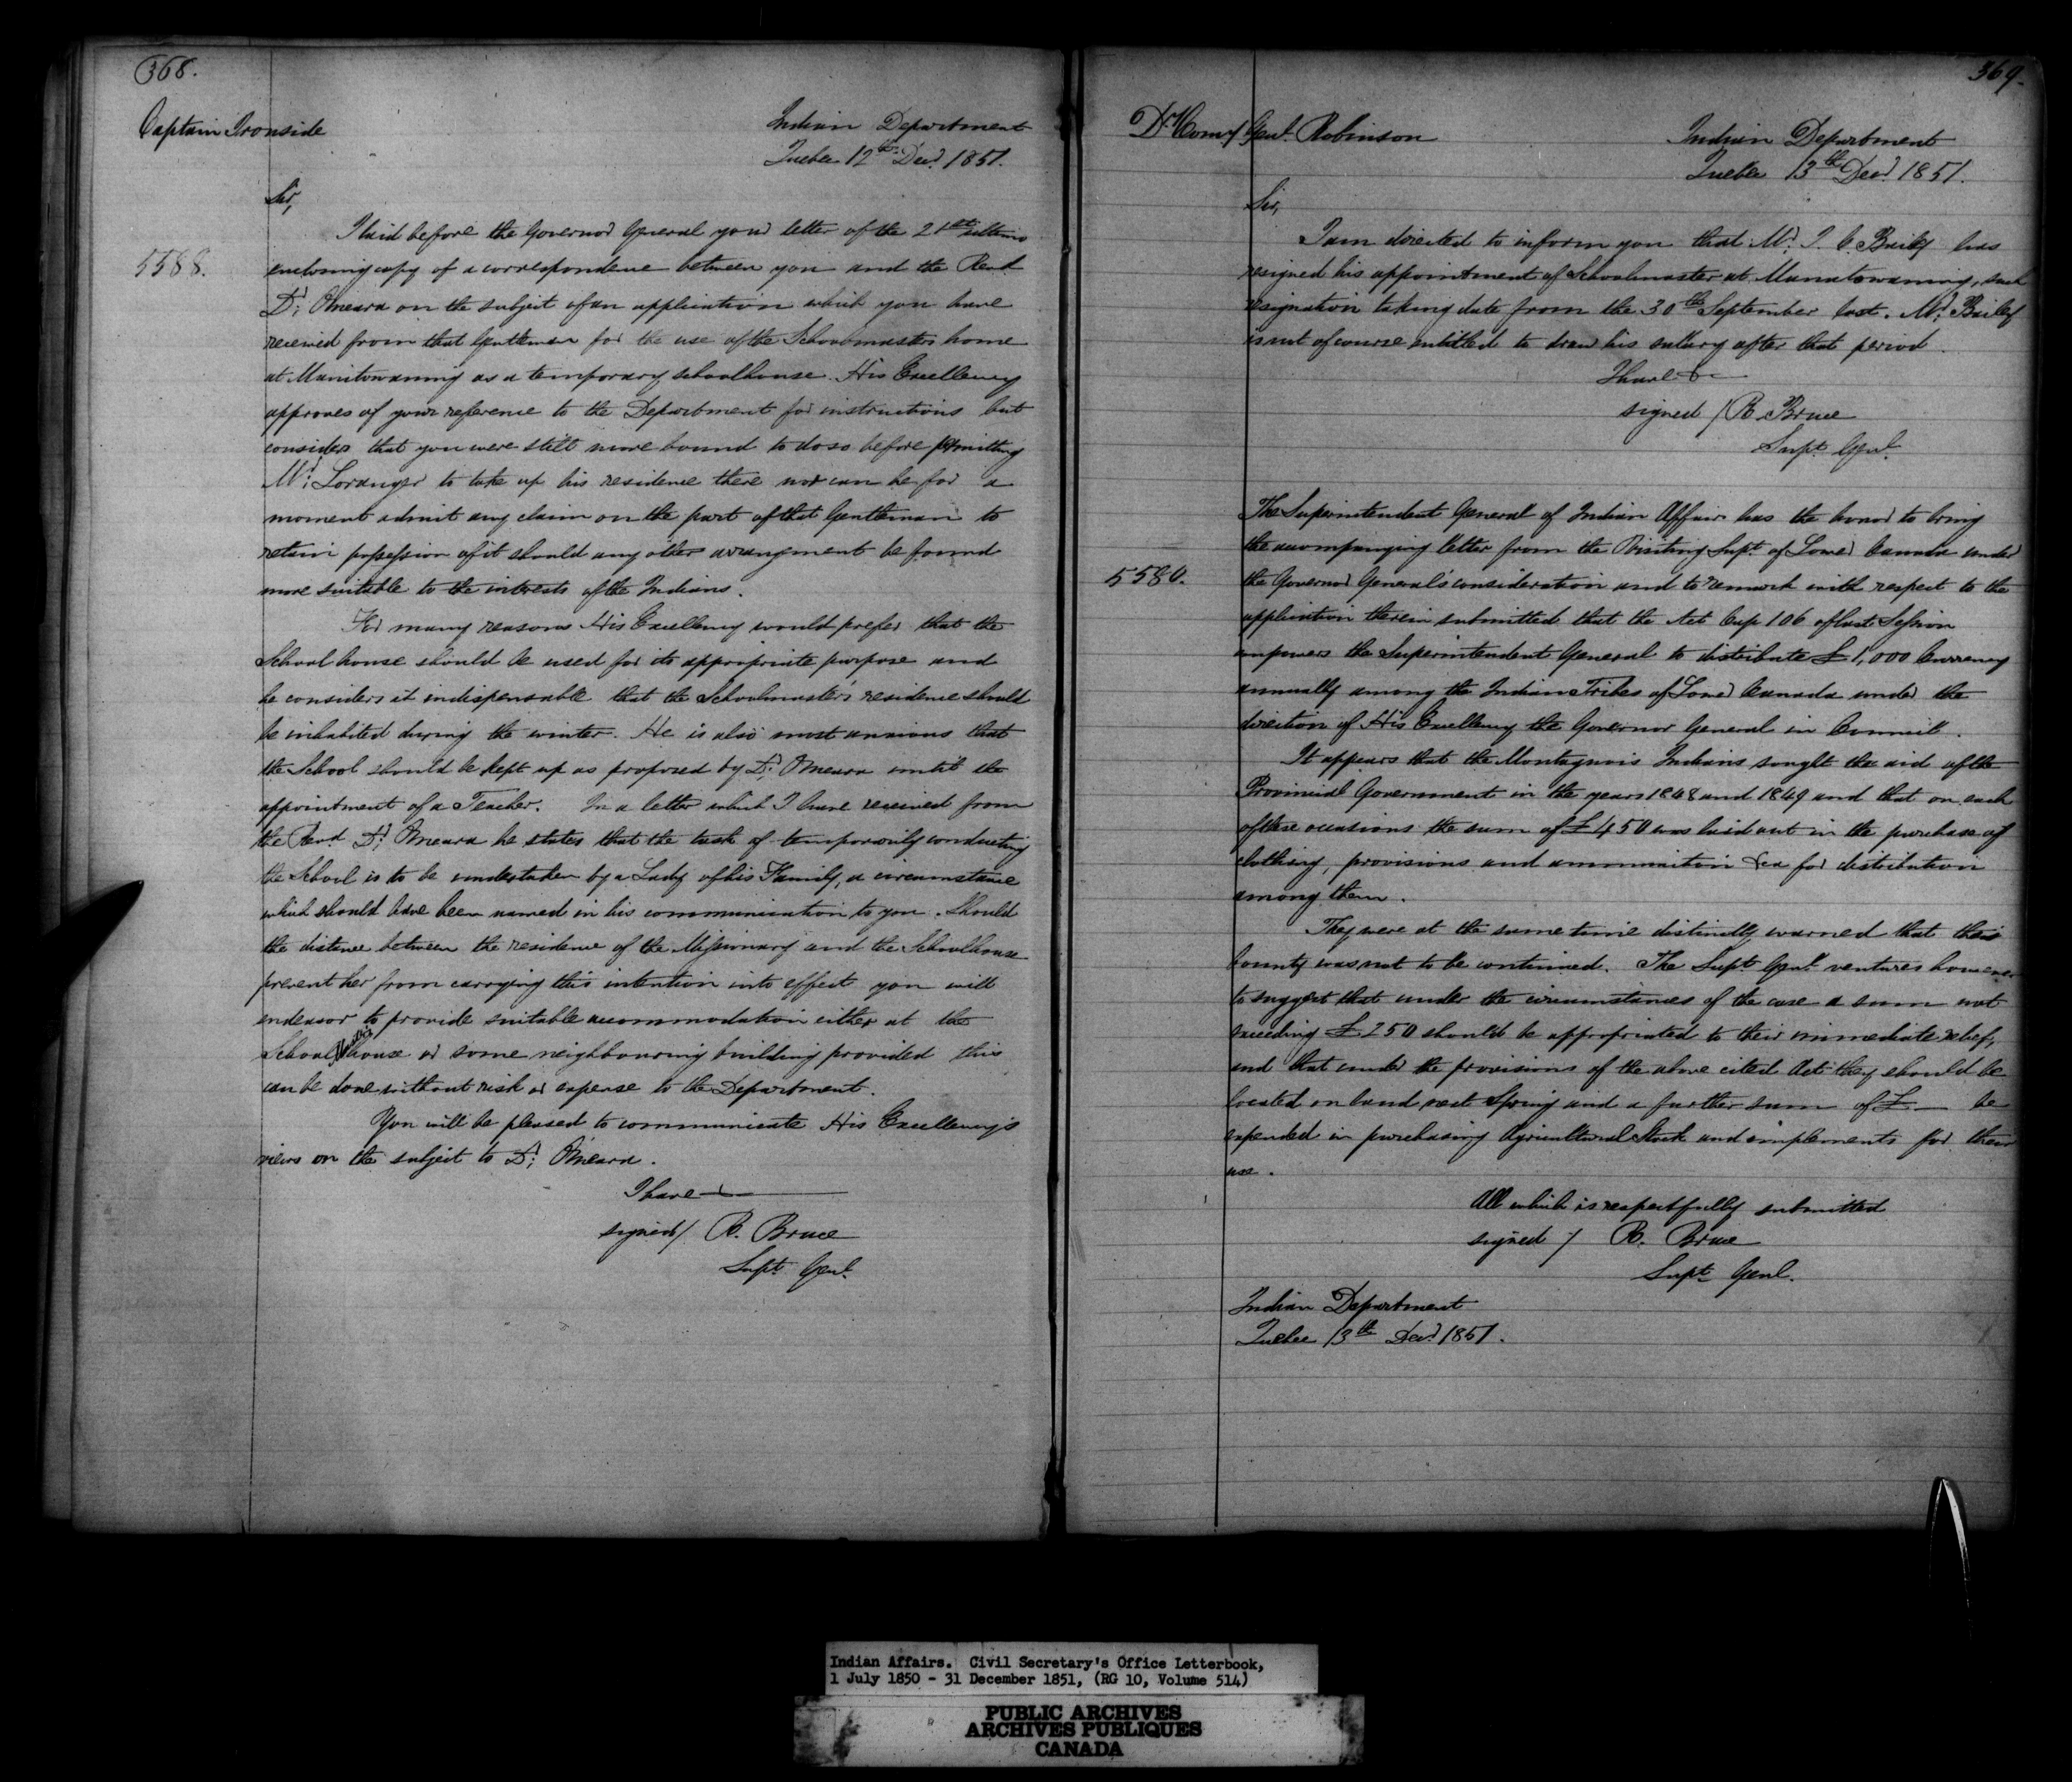 368.
Captain Ironside
Indian Department
Quebec 12th Decr. 1851.
Sir,
I laid before the Governor General your letter of the 21st ultimo
5588.
enclosing copy of a correspondence between you and the Revd
Dr. OMeara on the subject of an application which you have
received from that Gentleman for the use of the Schoolmasters home
at Manitowaning as a temporary schoolhouse. His Excellency
approves of your reference to the Department for instructions but
considers that you were still more bound to do so before permitting
Mr. Loranger to take up his residence there nor can he for a
moment admit any claim on the part of that Gentleman to
retain possession of it should any other arrangement be found
more suitable to the interests of the Indians.
For many reasons His Excellency would prefer that the
School house should be used for its appropriate purpose and
he considers it indispensable that the Schoolmaster's residence should
be inhabited during the winter. He is also most anxious that
the School should be kept up as proposed by Dr. OMeara until the
appointment of a Teacher. In a letter which I have received from
the Revd. Dr. OMeara he states that the task of temporarily conducting
the School is to be undertaken by a Lady of his Family, a circumstance
which should have been named in his communication to you. Should
the distance between the residence of the Missionary and the Schoolhouse
prevent her from carrying this intention into effect you will
endeavor to provide suitable accommodation either at the
School house or some neighbouring building provided this
can be done without risk or expense to the Department.
You will be pleased to communicate His Excellency's
views on the subject to Dr. OMeara.
I have
signed / R. Bruce
Supt. Genl.
369.
Dy. Comy. Genl. Robinson
Indian Department
Quebec 13th Decr. 1851.
Sir,
I am directed to inform you that Mr. I. C. Bailey has
resigned his appointment of Schoolmaster at Manatowaning, such
resignation taking date from the 30th September last. Mr. Bailey
is not of course entitled to draw his salary after that period.
I have &c
signed / R. Bruce
Supt. Genl.
The Superintendent General of Indian Affairs has the honor to bring
the accompanying letter from the Visiting Supt. of Lower Canada under
5580.
the Governor General's consideration and to remark with respect to the
application therein submitted that the Act Cap 106 of last Session
empowers the Superintendent General to distribute £1,000 Currency
annually among the Indian Tribes of Lower Canada under the
direction of His Excellency the Governor General in Council.
It appears that the Montagnais Indians sought the aid of the
Provincial Government in the years 1848 and 1849 and that on each
of these occasions the sum of £450 was laid out in the purchase of
clothing, provisions and ammunition &ca for distribution
among them.
They were at the same time distinctly warned that this
bounty was not to be continued. The Supt Genl. ventures however
to suggest that under the circumstances of the case a sum not
exceeding £250 should be appropriated to their immediate relief,
and that under the provisions of the above cited Act they should be
located on land next Spring and a further sum of £— be
expended in purchasing Agricultural Stock and implements for their
use.
All which is respectfully submitted
signed / R. Bruce
Supt Genl.
Indian Department
Quebec 13th Decr 1851.
Indian Affairs. Civil Secretary's Office Letterbook,
1 July 1850 - 31 December 1851, (RG 10, Volume 514)
PUBLIC ARCHIVES
ARCHIVES PUBLIQUES
CANADA